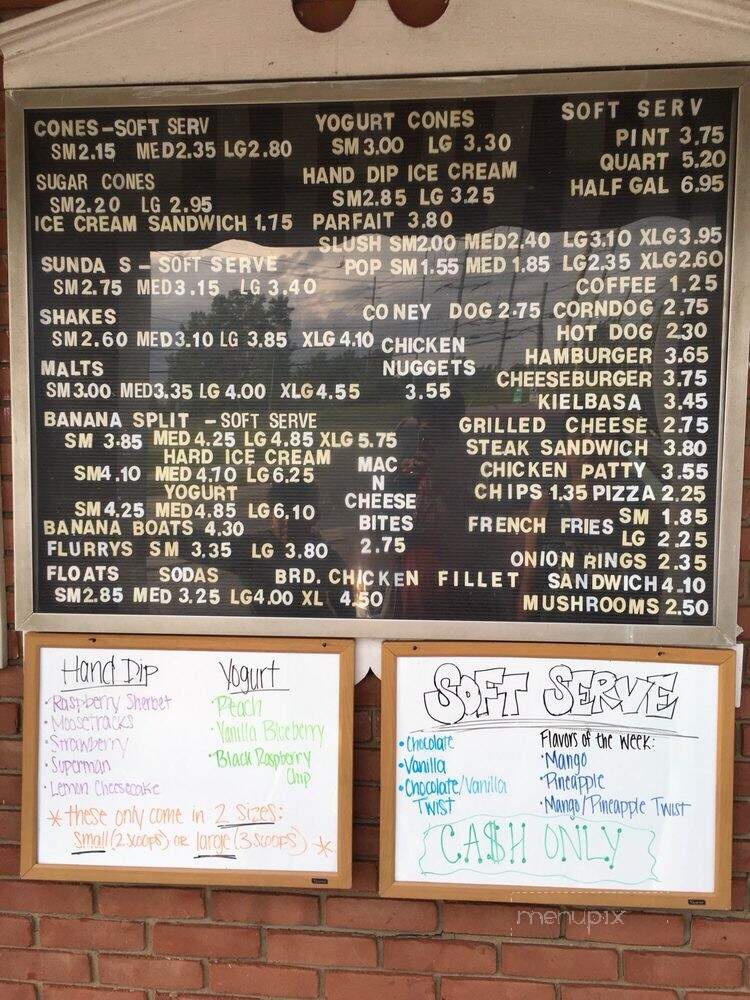 CONES-SOFT SERV
SM2.15 MED2.35 LG2.80
SUGAR CONES
SM2.20 LG 2.95
ICE CREAM SANDWICH 1.75
SUNDA S - SOFT SERVE
SM 2.75 MED3.15 LG 3.40
SHAKES
SM2.60 MED3.10 LG 3.85 XLG 4.10
MALTS
SM3.00 MED3.35 LG 4.00 XLG 4.55
BANANA SPLIT - SOFT SERVE
SM 3.85 MED 4.25 LG 4.85 XLG 5.75
HARD ICE CREAM
SM4.10 MED 4.70 LG6.25
YOGURT
SM 4.25 MED 4.85 LG6.10
BANANA BOATS 4.30
FLURRYS SM 3.35 LG 3.80
FLOATS SODAS
SM2.85 MED 3.25 LG4.00 XL 4.50
YOGURT CONES
SM 3.00 LG 3.30
HAND DIP ICE CREAM
SM2.85 LG 3.25
PARFAIT 3.80
SLUSH SM2.00 MED2.40 LG3.10 XLG3.95
POP SM 1.55 MED 1.85 LG2.35 XLG2.60
CHICKEN
NUGGETS
3.55
MAC
N
CHEESE
BITES
2.75
SOFT SERV
PINT 3.75
QUART 5.20
HALF GAL 6.95
COFFEE 1.25
CONEY DOG 2.75 CORNDOG 2.75
HOT DOG 2.30
HAMBURGER 3.65
CHEESEBURGER 3.75
KIELBASA 3.45
GRILLED CHEESE 2.75
STEAK SANDWICH 3.80
CHICKEN PATTY 3.55
CHIPS 1.35 PIZZA 2.25
FRENCH FRIES SM 1.85
LG 2.25
ONION RINGS 2.35
BRD. CHICKEN FILLET SANDWICH 4.10
MUSHROOMS 2.50
Hand Dip
• Raspberry Sherbet
• Moosetracks
• Strawberry
• Superman
• Lemon Cheesecake
Yogurt
• Peach
• Vanilla Blueberry
• Black Raspberry
Chip
* these only come in 2 sizes:
small (2 scoops) or large (3 scoops) *
SOFT SERVE
• Chocolate
• Vanilla
• Chocolate/Vanilla
Twist
Flavors of the Week:
• Mango
• Pineapple
• Mango/Pineapple Twist
CA$H ONLY
menupix